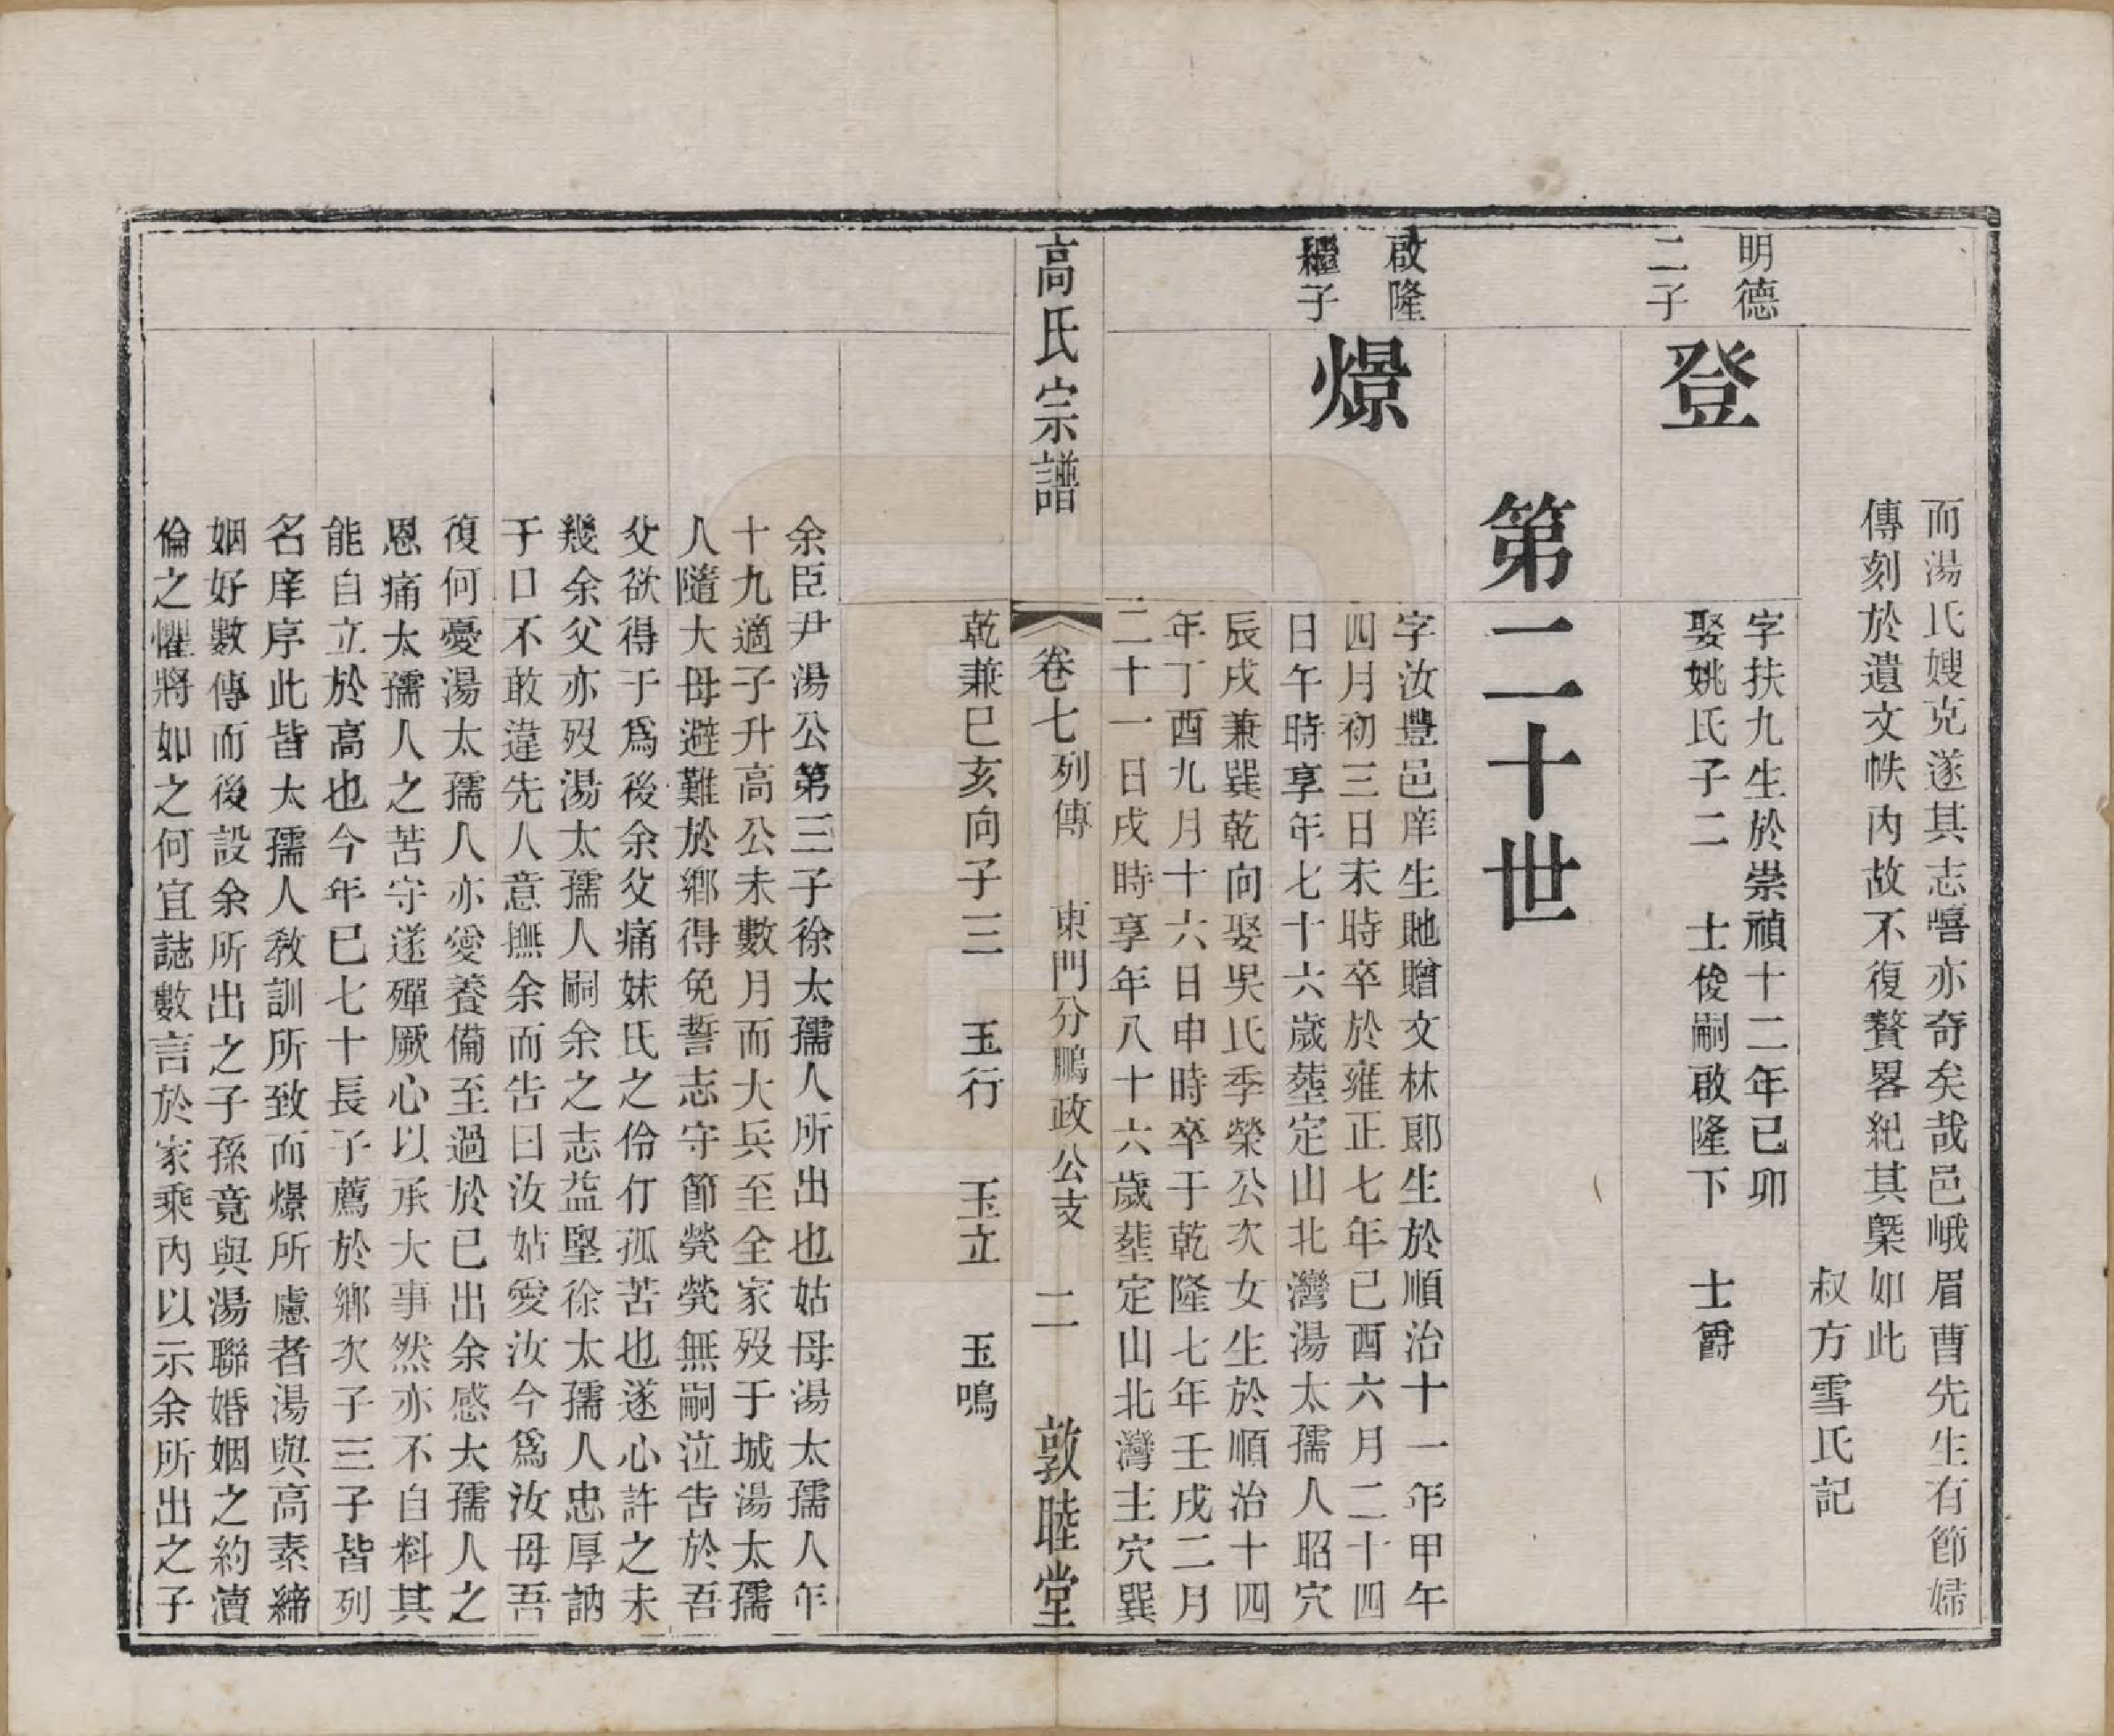 而湯氏嫂克遂其志嘻亦奇矣哉邑峨眉曹先生有節婦
傳刻於遺文帙內故不復贅畧紀其槩如此
叔方雪氏記
明德
二子
登
字扶九生於崇禎十二年己卯
娶姚氏子二　士俊嗣啟隆下　士爵
第二十世
啟隆
繼子
燝
字汝豐邑庠生貤贈文林郎生於順治十一年甲午
四月初三日未時卒於雍正七年己酉六月二十四
日午時享年七十六歲塟定山北灣湯太孺人昭穴
辰戌兼巽乾向娶吳氏季榮公次女生於順治十四
年丁酉九月十六日申時卒于乾隆七年壬戌二月
二十一日戌時享年八十六歲塟定山北灣主穴巽
高氏宗譜
卷七列傳　東門分鵬政公支　二　敦睦堂
乾兼巳亥向子三　玉行　玉立　玉鳴
余臣尹湯公第三子徐太孺人所出也姑母湯太孺人年
十九適子升高公未數月而大兵至全家歿于城湯太孺
人隨大母避難於鄉得免誓志守節煢煢無嗣泣告於吾
父欲得于爲後余父痛妹氏之伶仃孤苦也遂心許之未
幾余父亦歿湯太孺人嗣余之志益堅徐太孺人忠厚訥
于口不敢違先人意撫余而告曰汝姑愛汝今爲汝母吾
復何憂湯太孺人亦愛養備至過於已出余感太孺人之
恩痛太孺人之苦守遂殫厥心以承大事然亦不自料其
能自立於高也今年已七十長子薦於鄉次子三子皆列
名庠序此皆太孺人教訓所致而燝所慮者湯與高素締
姻好數傳而後設余所出之子孫竟與湯聯婚姻之約瀆
倫之懼將如之何宜誌數言於家乘內以示余所出之子